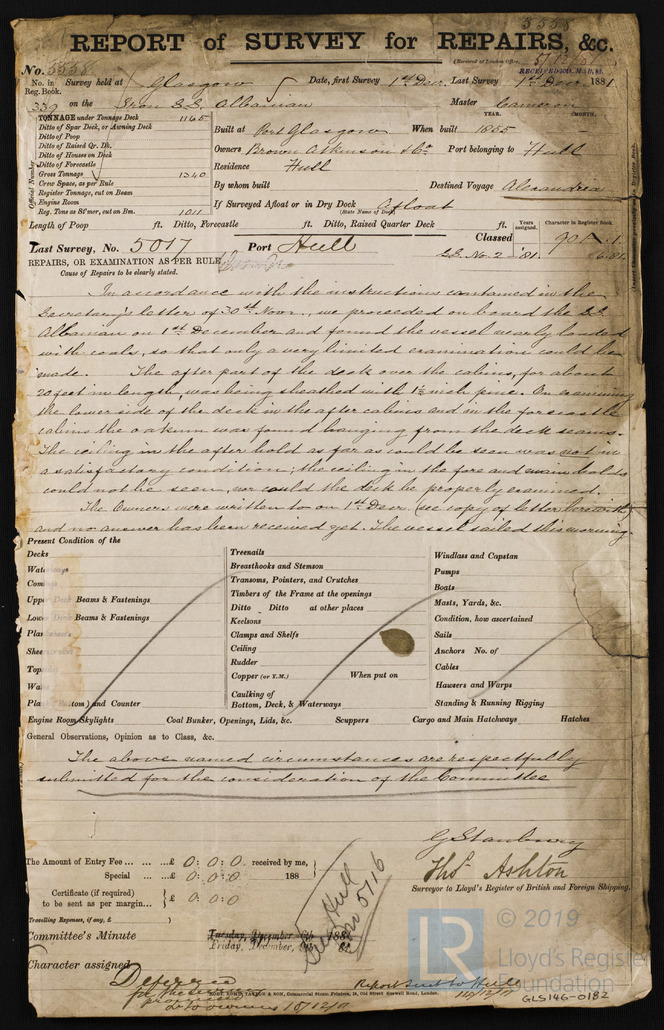 5558
REPORT of SURVEY for REPAIRS, &c.
(Received at London Office
No. 5558
No. in Survey held at Glasgow Date, first Survey 1st Decr. Last Survey 1st Decr. 1881
Reg. Book.
339 on the Iron S.S. Albanian Master Cameron
TONNAGE under Tonnage Deck 1165
Ditto of Spar Deck, or Awning Deck
Ditto of Poop
Ditto of Raised Qr. Dk.
Ditto of House on Deck
Ditto of Forecastle
Gross Tonnage 1340
Crew Space, as per Rule
Register Tonnage, cut on Beam
Engine Room
Reg. Tons as St'mer, cut on Bm. 1011
Official Number
YEAR. MONTH.
Built at Port Glasgow When built 1855
Owners Brown Atkinson & Co. Port belonging to Hull
Residence Hull
By whom built Destined Voyage Alexandria
If Surveyed Afloat or in Dry Dock Afloat
(State Name of Dock)
Length of Poop ft. Ditto, Forecastle ft. Ditto, Raised Quarter Deck ft.
Years assigned. Character in Register Book.
Last Survey, No. 5017 Port Hull Classed 90A.1.
S.S. No. 2 '81 6.81
REPAIRS, OR EXAMINATION AS PER RULE
Cause of Repairs to be clearly stated.
In accordance with the instructions contained in the
Secretary's letter of 30th Novr. we proceeded on board the S.S.
Albanian on 1st December and found the vessel nearly loaded
with coals, so that only a very limited examination could be
made. The after part of the deck over the cabins, for about
20 feet in length, was being sheathed with 1½ inch pine. On examining
the lower side of the deck in the after cabins and in the forecastle
cabins the oakum was found hanging from the deck seams.
The ceiling in the after hold as far as could be seen was not in
a satisfactory condition; the ceiling in the fore and main holds
could not be seen, nor could the deck be properly examined.
The Owners were written to on 1st Decr. (see copy of letter herewith)
and no answer has been received yet. The vessel sailed this morning.
Present Condition of the
Decks
Waterways
Upper Deck Beams & Fastenings
Lower Deck Beams & Fastenings
Plank (Bottom) and Counter
Treenails
Breasthooks and Stemson
Transoms, Pointers, and Crutches
Timbers of the Frame at the openings
Ditto Ditto at other places
Keelsons
Clamps and Shelfs
Ceiling
Rudder
Copper (or Y.M.) When put on
Caulking of
Bottom, Deck, & Waterways
Windlass and Capstan
Pumps
Boats
Masts, Yards, &c.
Condition, how ascertained
Sails
Anchors No. of
Cables
Hawsers and Warps
Standing & Running Rigging
Engine Room Skylights Coal Bunker, Openings, Lids, &c. Scuppers Cargo and Main Hatchways Hatches
General Observations, Opinion as to Class, &c.
The above named circumstances are respectfully
submitted for the consideration of the Committee
G Stanbury
Thos. Ashton
Surveyor to Lloyd's Register of British and Foreign Shipping.
The Amount of Entry Fee ... £ 0:0:0 received by me,
Special ... £ 0:0:0 188
Certificate (if required)
to be sent as per margin... £ 0:0:0
Travelling Expenses, if any, £
Hull
5116
Committee's Minute Tuesday, December
Friday, December,
Character assigned Deferred
Report sent to Hull
LR
© 2019
Lloyd's Register
Foundation
GLS146-0182